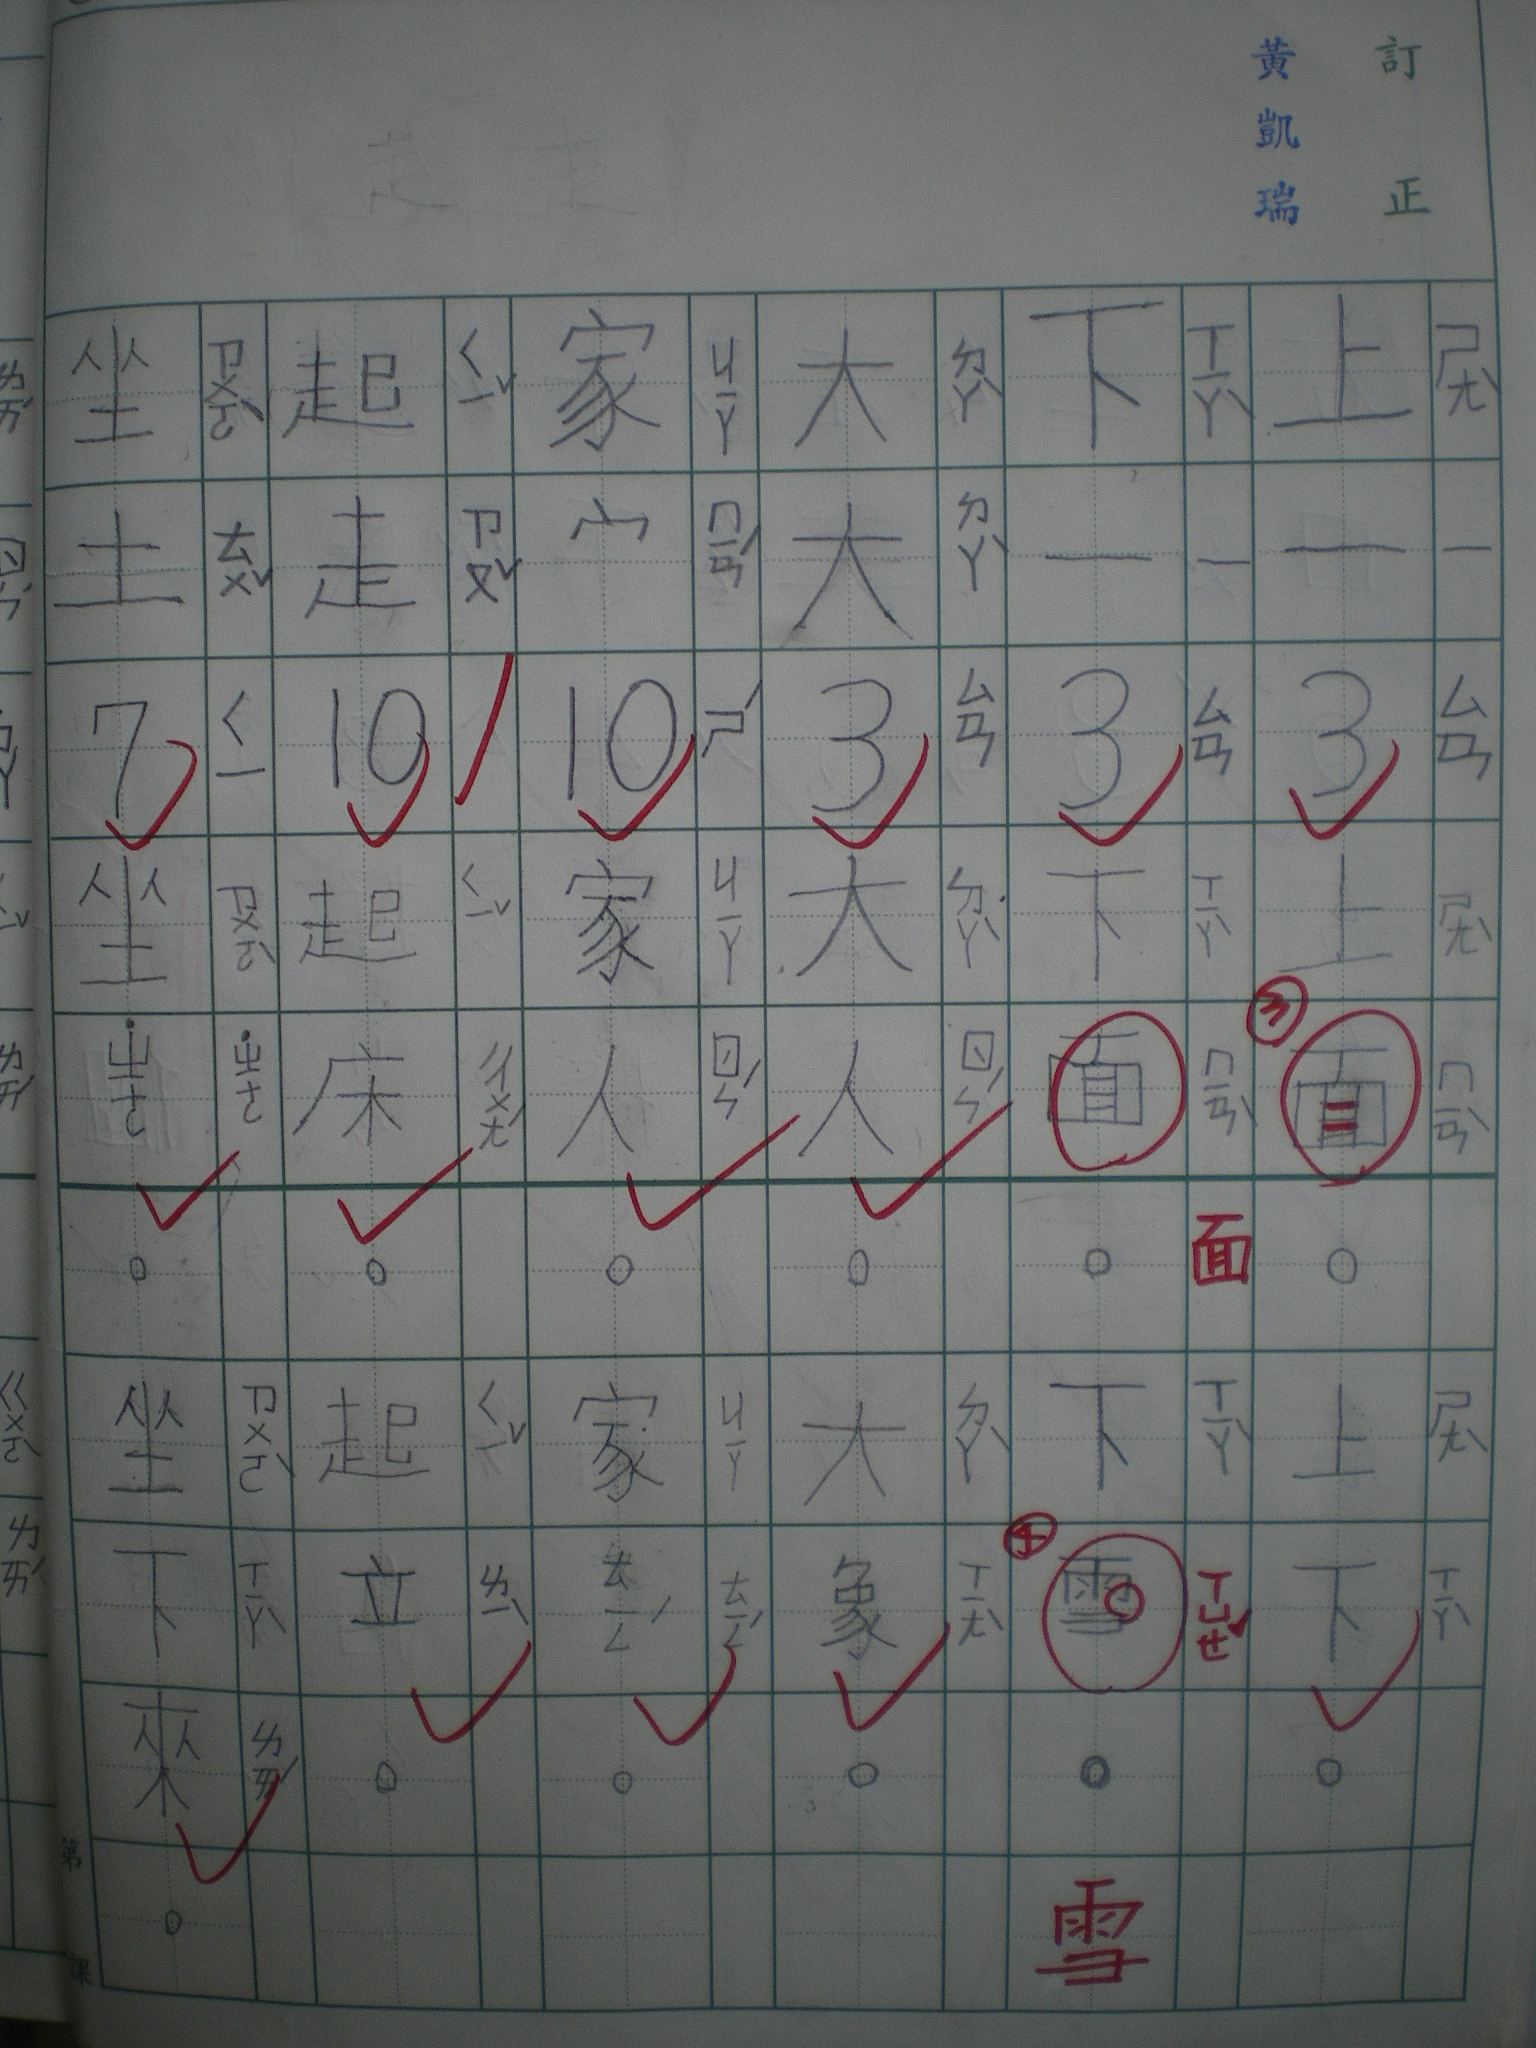 訂正
黃凱瑞
上 ㄕㄤˋ
一 一
3 ㄙㄢ
上面。 ㄕㄤˋ ㄇㄧㄢˋ
上下。 ㄕㄤˋ ㄒㄧㄚˋ
③
下 ㄒㄧㄚˋ
一 一
3 ㄙㄢ
下面。 ㄒㄧㄚˋ ㄇㄧㄢˋ
面
下雪。 ㄒㄧㄚˋ ㄒㄩㄝˇ
雪
大 ㄉㄚˋ
大 ㄉㄚˋ
3 ㄙㄢ
大人。 ㄉㄚˋ ㄖㄣˊ
大象。 ㄉㄚˋ ㄒㄧㄤˋ
家 ㄐㄧㄚ
宀 ㄇㄧㄢˊ
10 ㄕˊ
家人。 ㄐㄧㄚ ㄖㄣˊ
家ㄊㄧㄥˊ。 ㄐㄧㄚ ㄊㄧㄥˊ
起 ㄑㄧˇ
走 ㄗㄡˇ
10
起床。 ㄑㄧˇ ㄔㄨㄤˊ
起立。 ㄑㄧˇ ㄌㄧˋ
坐 ㄗㄨㄛˋ
土 ㄊㄨˇ
7 ㄑㄧ
坐˙ㄓㄜ。 ㄗㄨㄛˋ ˙ㄓㄜ
坐下來。 ㄗㄨㄛˋ ㄒㄧㄚˋ ㄌㄞˊ
第 課